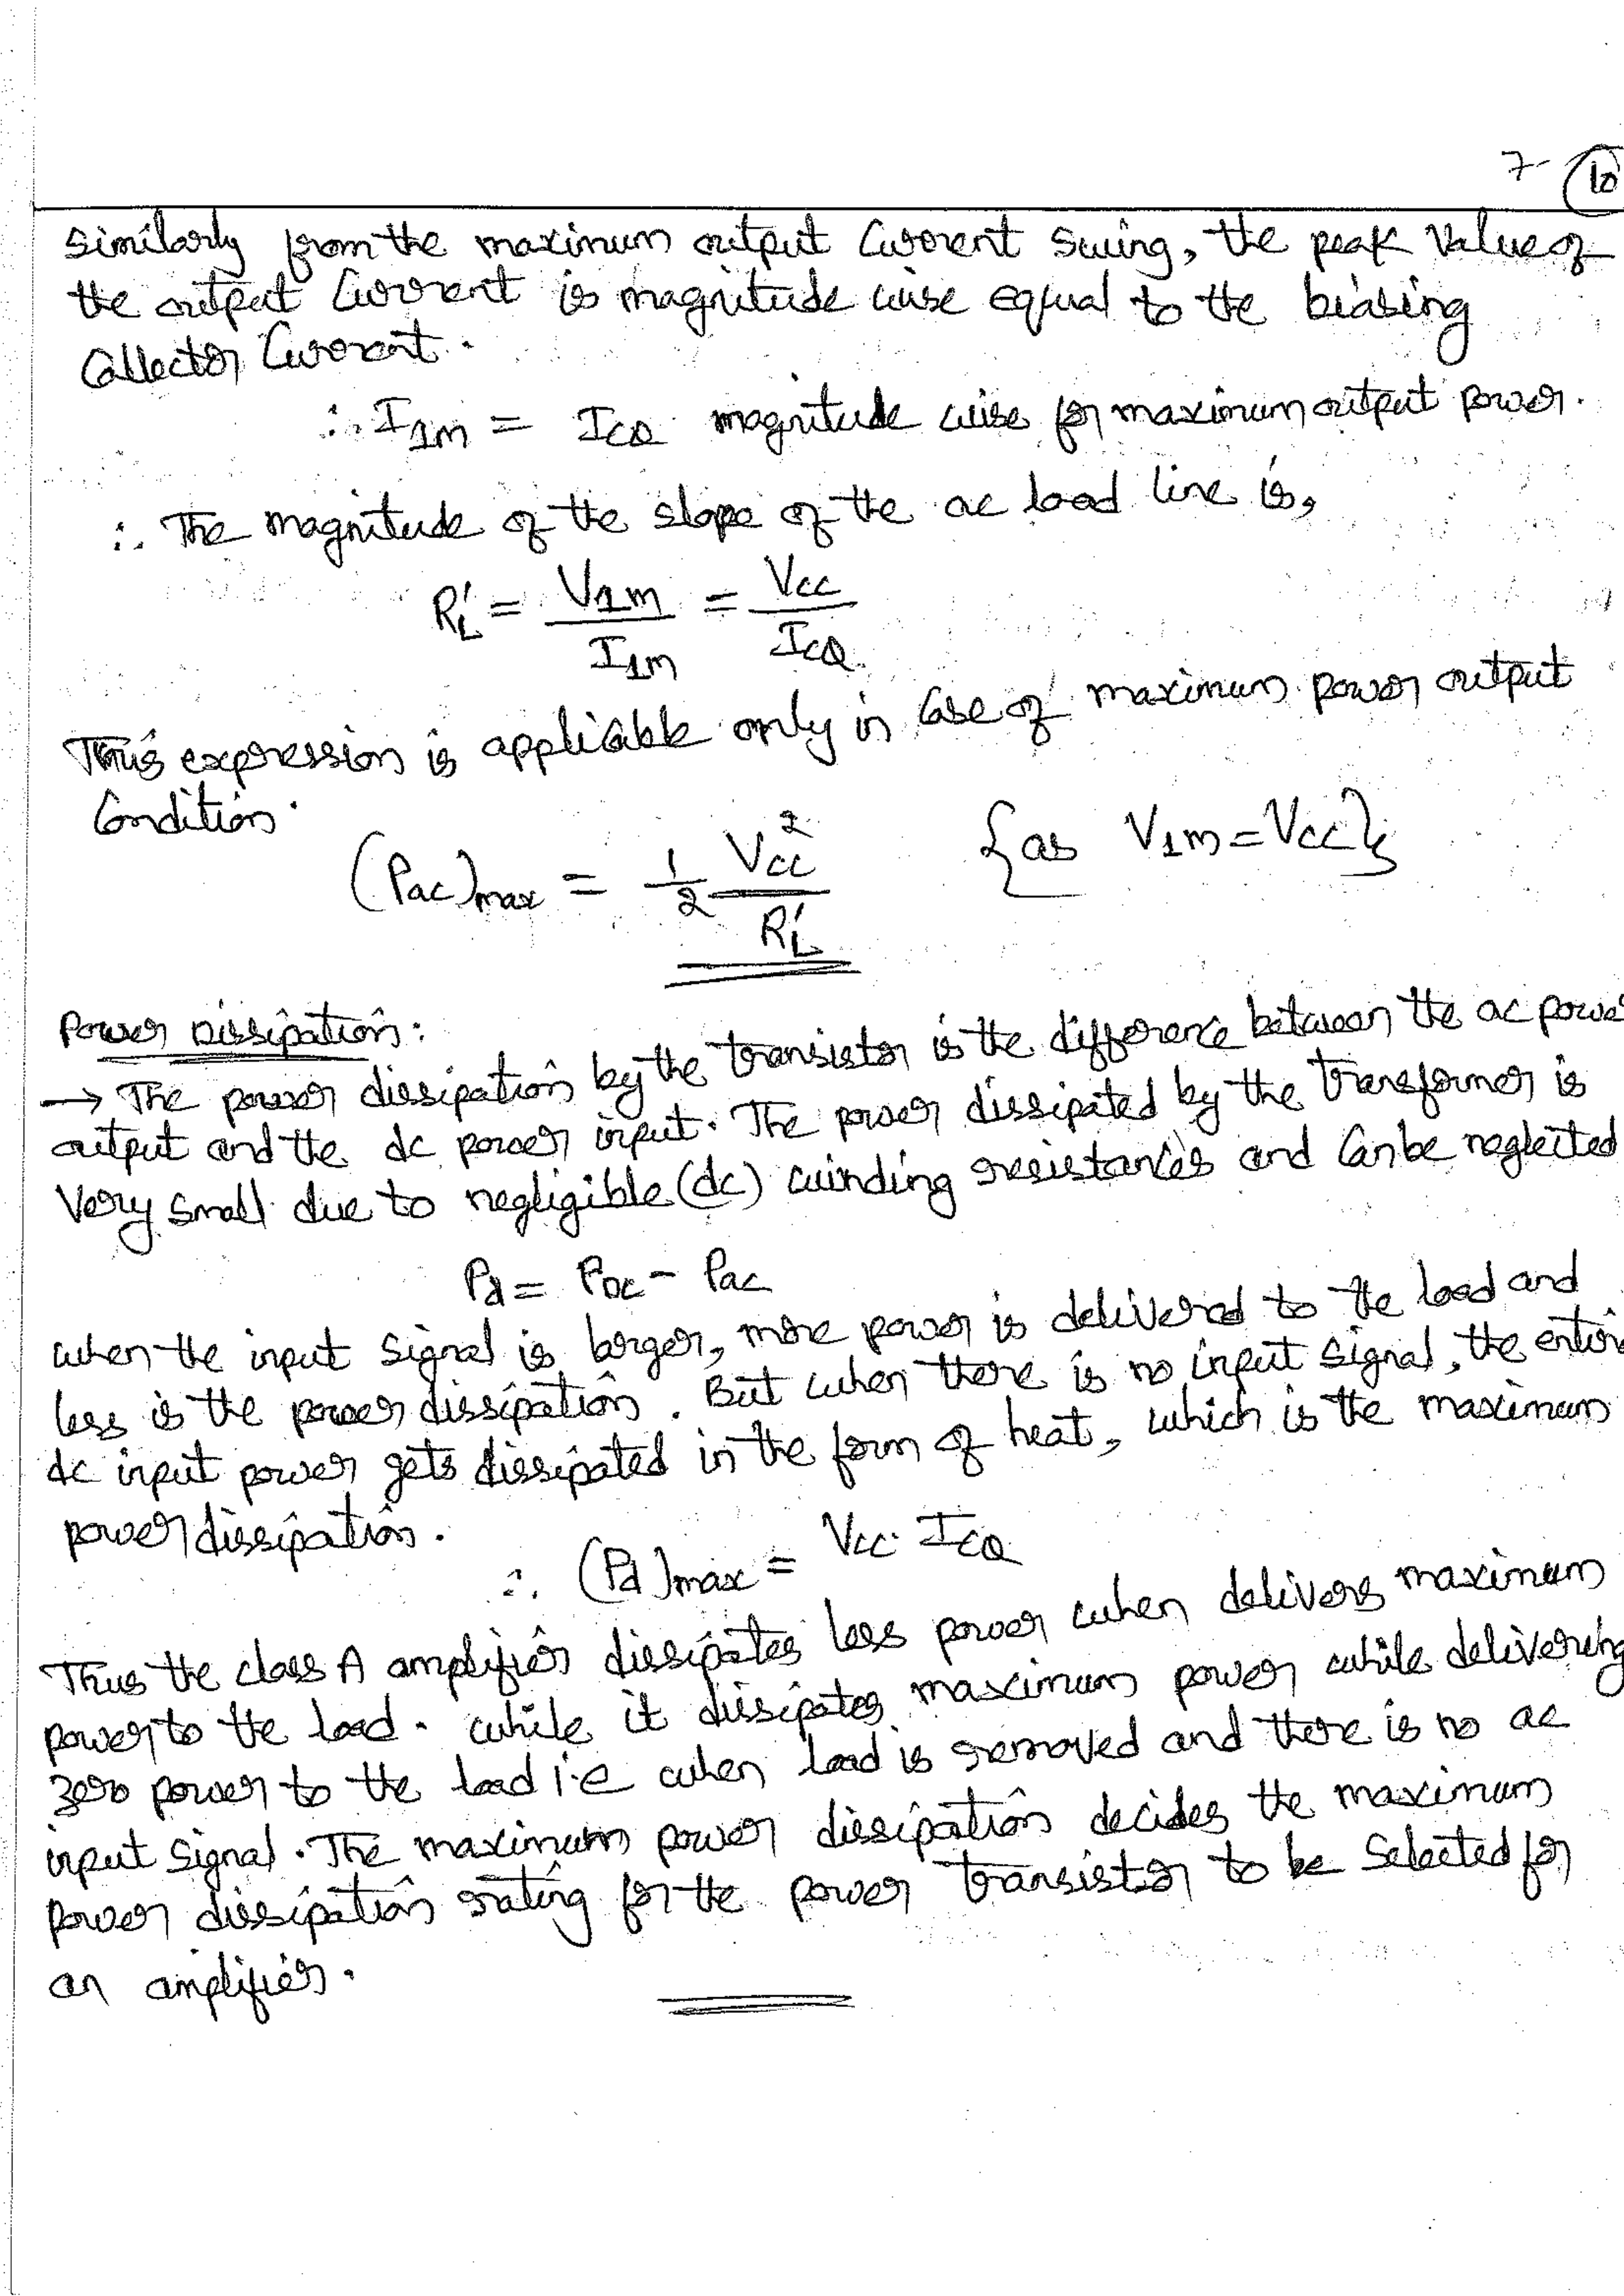 7- 10
Similarly from the maximum output Current Swing, the peak Value of
the output Current is magnitude wise equal to the biasing
Collector Current.
∴ I1m = ICQ magnitude wise for maximum output power.
∴ The magnitude of the slope of the ac load line is,
RL' = V1m / I1m = VCC / ICQ
This expression is applicable only in Case of maximum power output
Condition.
(Pac)max = 1/2 VCC² / RL' {as V1m = VCC}
Power Dissipation:
→ The power dissipation by the transistor is the difference between the ac powe
output and the dc power input. The power dissipated by the transformer is
Very small due to negligible (dc) winding resistances and Can be neglected
Pd = PDC - Pac
when the input signal is larger, more power is delivered to the load and
less is the power dissipation. But when there is no input signal, the entire
dc input power gets dissipated in the form of heat, which is the maximum
power dissipation.
∴ (Pd)max = VCC. ICQ
Thus the class A amplifier dissipates less power when delivers maximum
power to the load. while it dissipates maximum power while delivering
zero power to the load i.e when load is removed and there is no ac
input signal. The maximum power dissipation decides the maximum
power dissipation rating for the power transistor to be selected for
an amplifier.